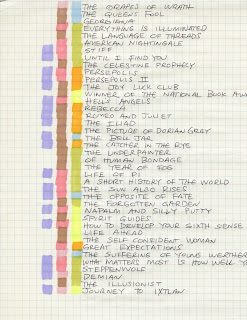 THE GRAPES OF WRATH
THE QUEEN'S FOOL
GEORGIANA
EVERYTHING IS ILLUMINATED
THE LANGUAGE OF THREADS
AMERICAN NIGHTINGALE
STIFF
UNTIL I FIND YOU
THE CELESTINE PROPHECY
PERSEPOLIS
PERSEPOLIS II
THE JOY LUCK CLUB
WINNER OF THE NATIONAL BOOK AWA
HELL'S ANGELS
REBECCA
ROMEO AND JULIET
THE ILIAD
THE PICTURE OF DORIAN GRAY
THE BELL JAR
THE CATCHER IN THE RYE
THE UNDERPAINTER
OF HUMAN BONDAGE
THE YEAR OF FOG
LIFE OF PI
A SHORT HISTORY OF THE WORLD
THE SUN ALSO RISES
THE OPPOSITE OF FATE
THE FORGOTTEN GARDEN
NAPALM AND SILLY PUTTY
SPIRIT GUIDES
HOW TO DEVELOP YOUR SIXTH SENSE
LIFE AHEAD
THE SELF CONFIDENT WOMAN
GREAT EXPECTATIONS
THE SUFFERING OF YOUNG WERTHER
WHAT MATTERS MOST IS HOW WELL Y
STEPPENWOLF
DEMIAN
THE ILLUSIONIST
JOURNEY TO IXTLAN